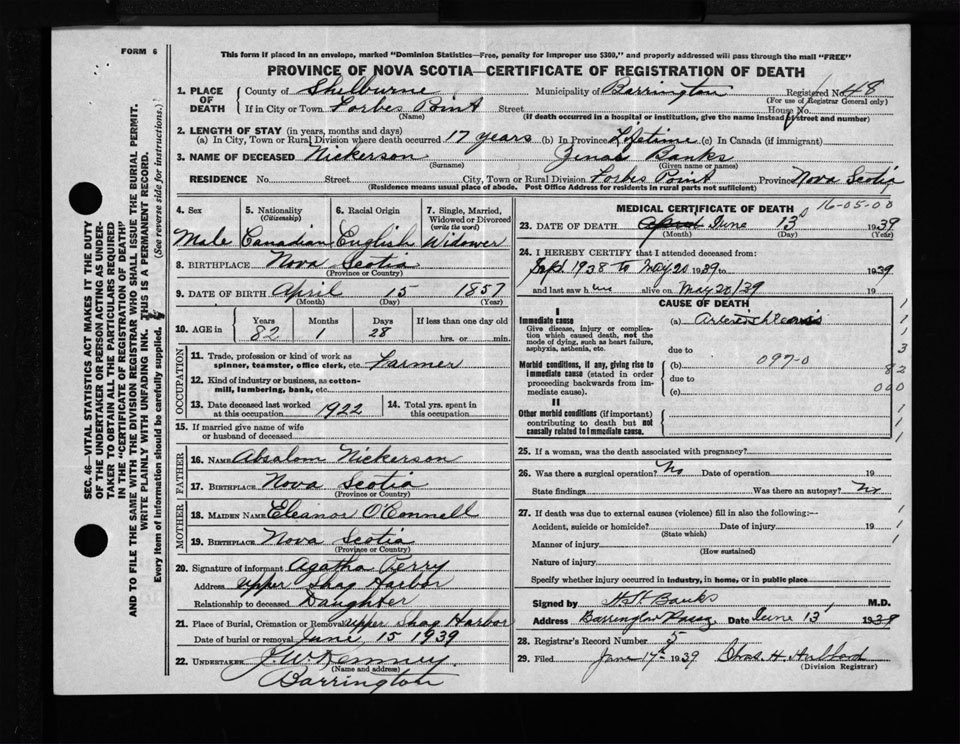 FORM 6
This form if placed in an envelope, marked "Dominion Statistics—Free, penalty for improper use $300," and properly addressed will pass through the mail "FREE"
PROVINCE OF NOVA SCOTIA—CERTIFICATE OF REGISTRATION OF DEATH
SEC. 46—VITAL STATISTICS ACT MAKES IT THE DUTY
OF THE UNDERTAKER OR PERSON ACTING AS UNDER-
TAKER TO OBTAIN ALL THE PARTICULARS REQUIRED
IN THE "CERTIFICATE OF REGISTRATION OF DEATH"
AND TO FILE THE SAME WITH THE DIVISION REGISTRAR WHO SHALL ISSUE THE BURIAL PERMIT.
WRITE PLAINLY WITH UNFADING INK. THIS IS A PERMANENT RECORD.
Every item of information should be carefully supplied. (See reverse side for instructions.)
1. PLACE OF DEATH County of Shelburne Municipality of Barrington Registered No. 48
(For use of Registrar General only)
If in City or Town Forbes Point Street House No.
(Name) (If death occurred in a hospital or institution, give the name instead of street and number)
2. LENGTH OF STAY (in years, months and days)
(a) In City, Town or Rural Division where death occurred 17 years (b) In Province Lifetime (c) In Canada (if immigrant)
3. NAME OF DECEASED Nickerson Zenas Banks
(Surname) (Given name or names)
RESIDENCE No. Street City, Town or Rural Division Forbes Point Province Nova Scotia
(Residence means usual place of abode. Post Office Address for residents in rural parts not sufficient)
4. Sex
Male
5. Nationality
(Citizenship)
Canadian
6. Racial Origin
English
7. Single, Married,
Widowed or Divorced
(write the word)
Widower
8. BIRTHPLACE Nova Scotia
(Province or Country)
9. DATE OF BIRTH April 15 1857
(Month) (Day) (Year)
10. AGE in Years Months Days If less than one day old
82 1 28 hrs. or min.
OCCUPATION
11. Trade, profession or kind of work as
spinner, teamster, office clerk, etc. Farmer
12. Kind of industry or business, as cotton-
mill, lumbering, bank, etc.
13. Date deceased last worked
at this occupation 1922
14. Total yrs. spent in
this occupation
15. If married give name of wife
or husband of deceased
FATHER
16. NAME Absalom Nickerson
17. BIRTHPLACE Nova Scotia
(Province or Country)
MOTHER
18. MAIDEN NAME Eleanor O'Connell
19. BIRTHPLACE Nova Scotia
(Province or Country)
20. Signature of informant Agatha Perry
Address Upper Shag Harbor
Relationship to deceased Daughter
21. Place of Burial, Cremation or Removal Upper Shag Harbor
Date of burial or removal June 15 1939
22. UNDERTAKER J. W. Kenney
(Name and address)
Barrington
MEDICAL CERTIFICATE OF DEATH 16-05-00
23. DATE OF DEATH June 13 1939
(Month) (Day) (Year)
24. I HEREBY CERTIFY that I attended deceased from:
Sept 1938 to May 20 1939 to 1939
and last saw him alive on May 20/39 19
CAUSE OF DEATH
I
Immediate cause
Give disease, injury or complica-
tion which caused death, not the
mode of dying, such as heart failure,
asphyxia, asthenia, etc.
(a) Arteriosclerosis
due to
Morbid conditions, if any, giving rise to
immediate cause (stated in order
proceeding backwards from im-
mediate cause).
(b) 097-0
due to
(c)
3
82
000
II
Other morbid conditions (if important)
contributing to death but not
causally related to immediate cause.
25. If a woman, was the death associated with pregnancy?
26. Was there a surgical operation? No Date of operation 19
State findings Was there an autopsy? No
27. If death was due to external causes (violence) fill in also the following:—
Accident, suicide or homicide? Date of injury 19
(State which)
Manner of injury
(How sustained)
Nature of injury
Specify whether injury occurred in industry, in home, or in public place
Signed by Banks M.D.
Address Barrington Date June 13 1939
28. Registrar's Record Number 5
29. Filed June 17th 1939 Chas. H.
(Division Registrar)